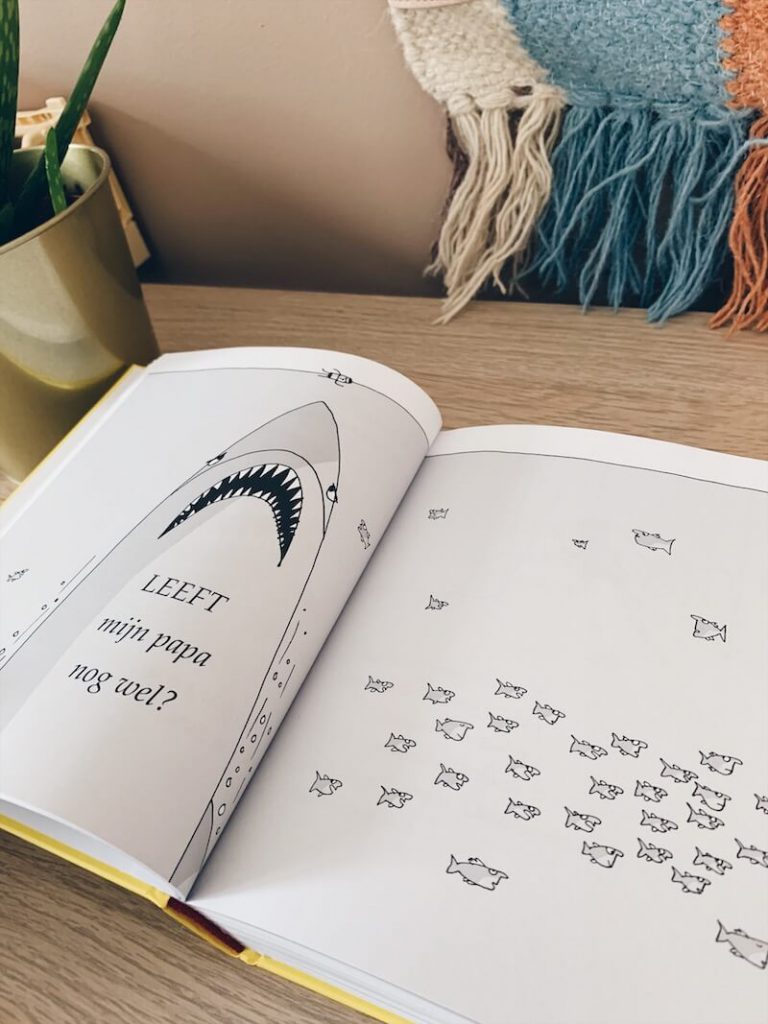 LEEFT
mijn papa
nog wel?